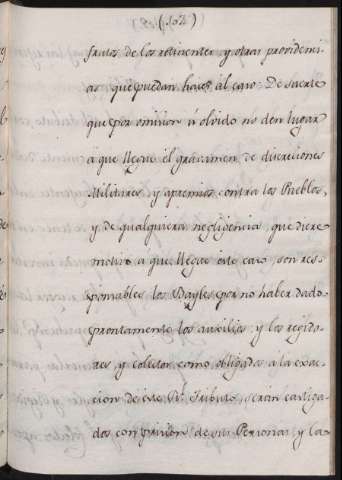 (102)
frutos de los retinentes y otras providenci-
as que puedan hacer al caso. De suerte
que por omision ú olvido no den lugar
à que llegue el gravamen de diecciones
Militares, y apremios contra los Pueblos,
y de qualquiera negligencia que diere
motivo a que llegue este caso, son res-
ponsables los Bayles por no haber dado
prontamente los auxilios, y los regido-
res, y colector como obligados a la exac-
cion de este Rl. Tributo, serán castiga-
dos con prision de sus Personas y la